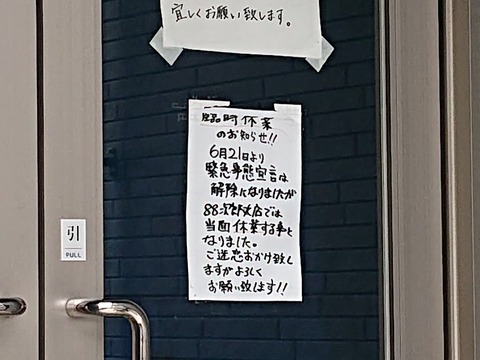 宜しくお願い致します。
臨時休業
のお知らせ!!
6月21日より
緊急事態宣言は
解除になりましたが
88次郎丸店では
当面休業する事と
なりました。
ご迷惑おかけ致し
ますがよろしく
お願い致します!!
引
PULL